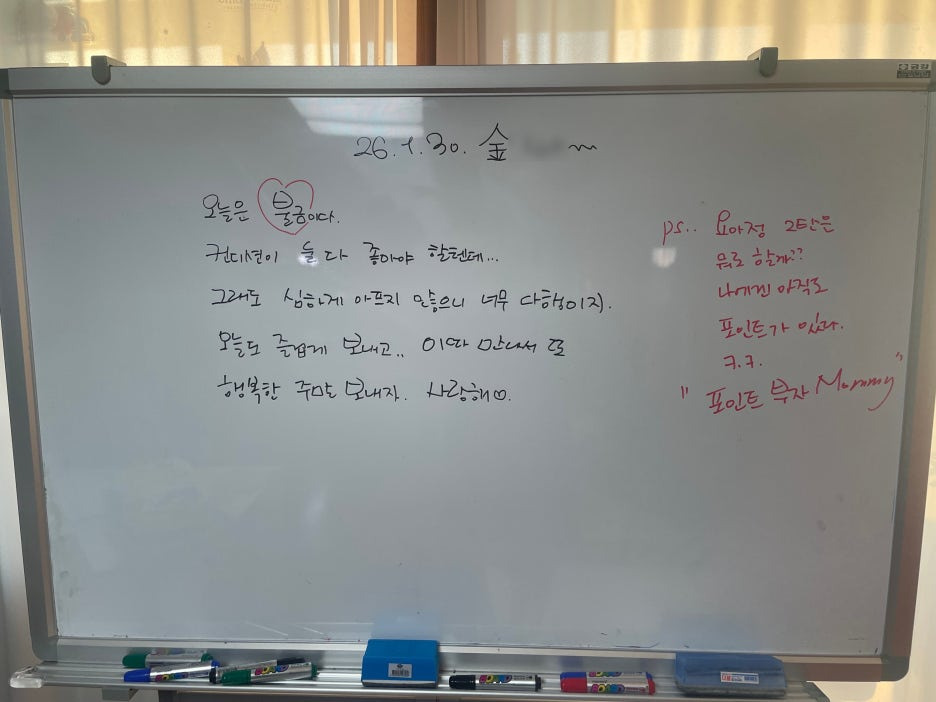 26.1.30. 金 ~
오늘은 불금이다.
컨디션이 둘 다 좋아야 할텐데...
그래도 심하게 아프지 않으니 너무 다행이지.
오늘도 즐겁게 보내고.. 이따 만나서 또
행복한 주말 보내자. 사랑해♡.
ps.. 요아정 2탄은
뭐로 할까??
나에겐 아직도
포인트가 있다.
ㅋ.ㅋ.
"포인트 부자 Mommy"